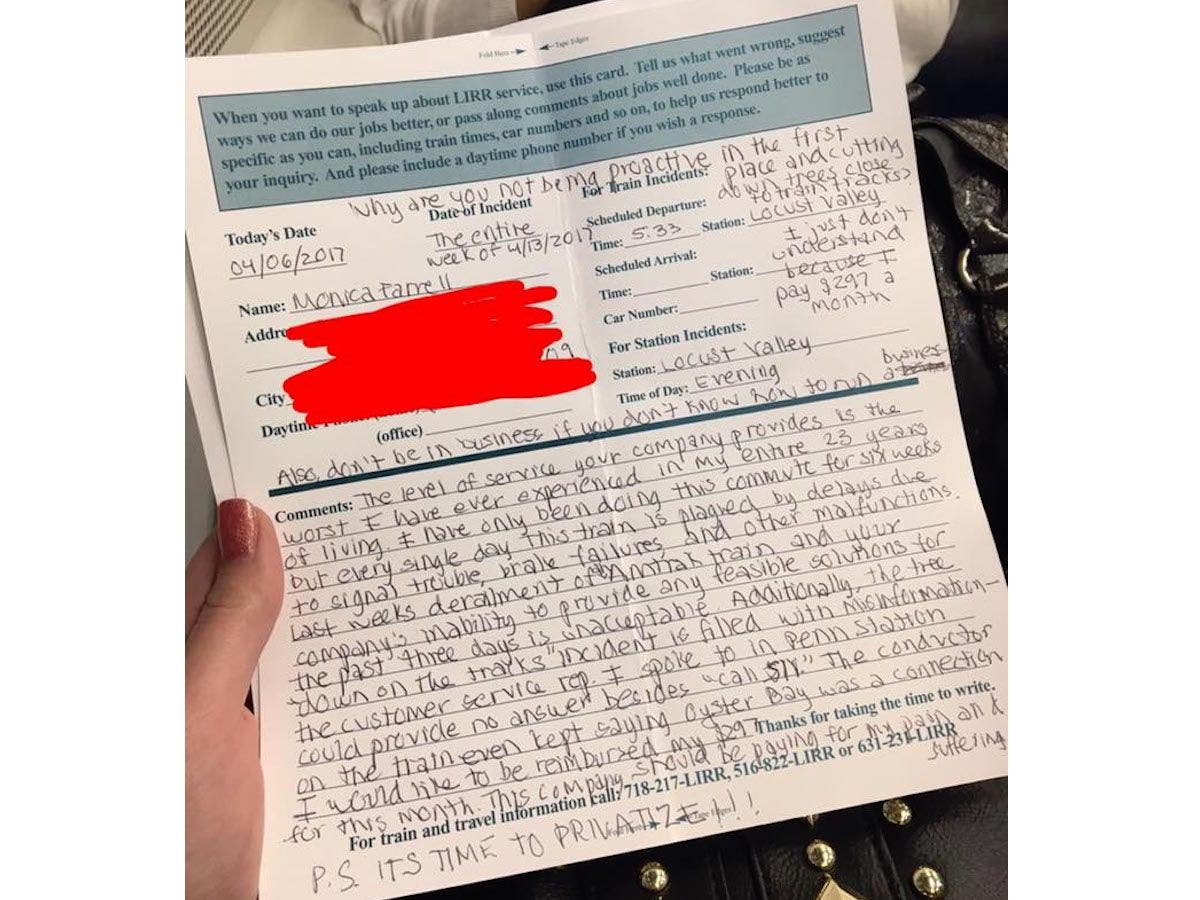 Fold Here
Tape Edges
When you want to speak up about LIRR service, use this card. Tell us what went wrong, suggest
ways we can do our jobs better, or pass along comments about jobs well done. Please be as
specific as you can, including train times, car numbers and so on, to help us respond better to
your inquiry. And please include a daytime phone number if you wish a response.
Why are you not being proactive in the first
place and cutting
down trees close
to train tracks?
Today's Date
04/06/2017
Date of Incident
The entire
week of 4/13/2017
Name: Monica Farrell
Addre
n9
City
Daytim
(office)
For Train Incidents:
Scheduled Departure:
Time: 5:33 Station: Locust Valley
Scheduled Arrival:
Time: Station:
Car Number:
I just don't
understand
because I
pay $297 a
month
For Station Incidents:
Station: Locust Valley
Time of Day: Evening
Also, don't be in business if you don't know how to run a business
Comments: The level of service your company provides is the
worst I have ever experienced in my entire 23 years
of living. I have only been doing this commute for six weeks
but every single day this train is plagued by delays due
to signal trouble, brake failures and other malfunctions.
Last weeks derailment of Amtrak train and your
company's inability to provide any feasible solutions for
the past three days is unacceptable. Additionally, the tree
"down on the tracks" incident is filled with misinformation-
the customer service rep. I spoke to in Penn Station
could provide no answer besides "call 511." The conductor
on the train even kept saying Oyster Bay was a connection
I would like to be reimbursed my $297
for this month. This company should be paying for my pain and
suffering
Thanks for taking the time to write.
For train and travel information call: 718-217-LIRR, 516-822-LIRR or 631-231-LIRR
Tape Edges
P.S. ITS TIME TO PRIVATIZE!!!